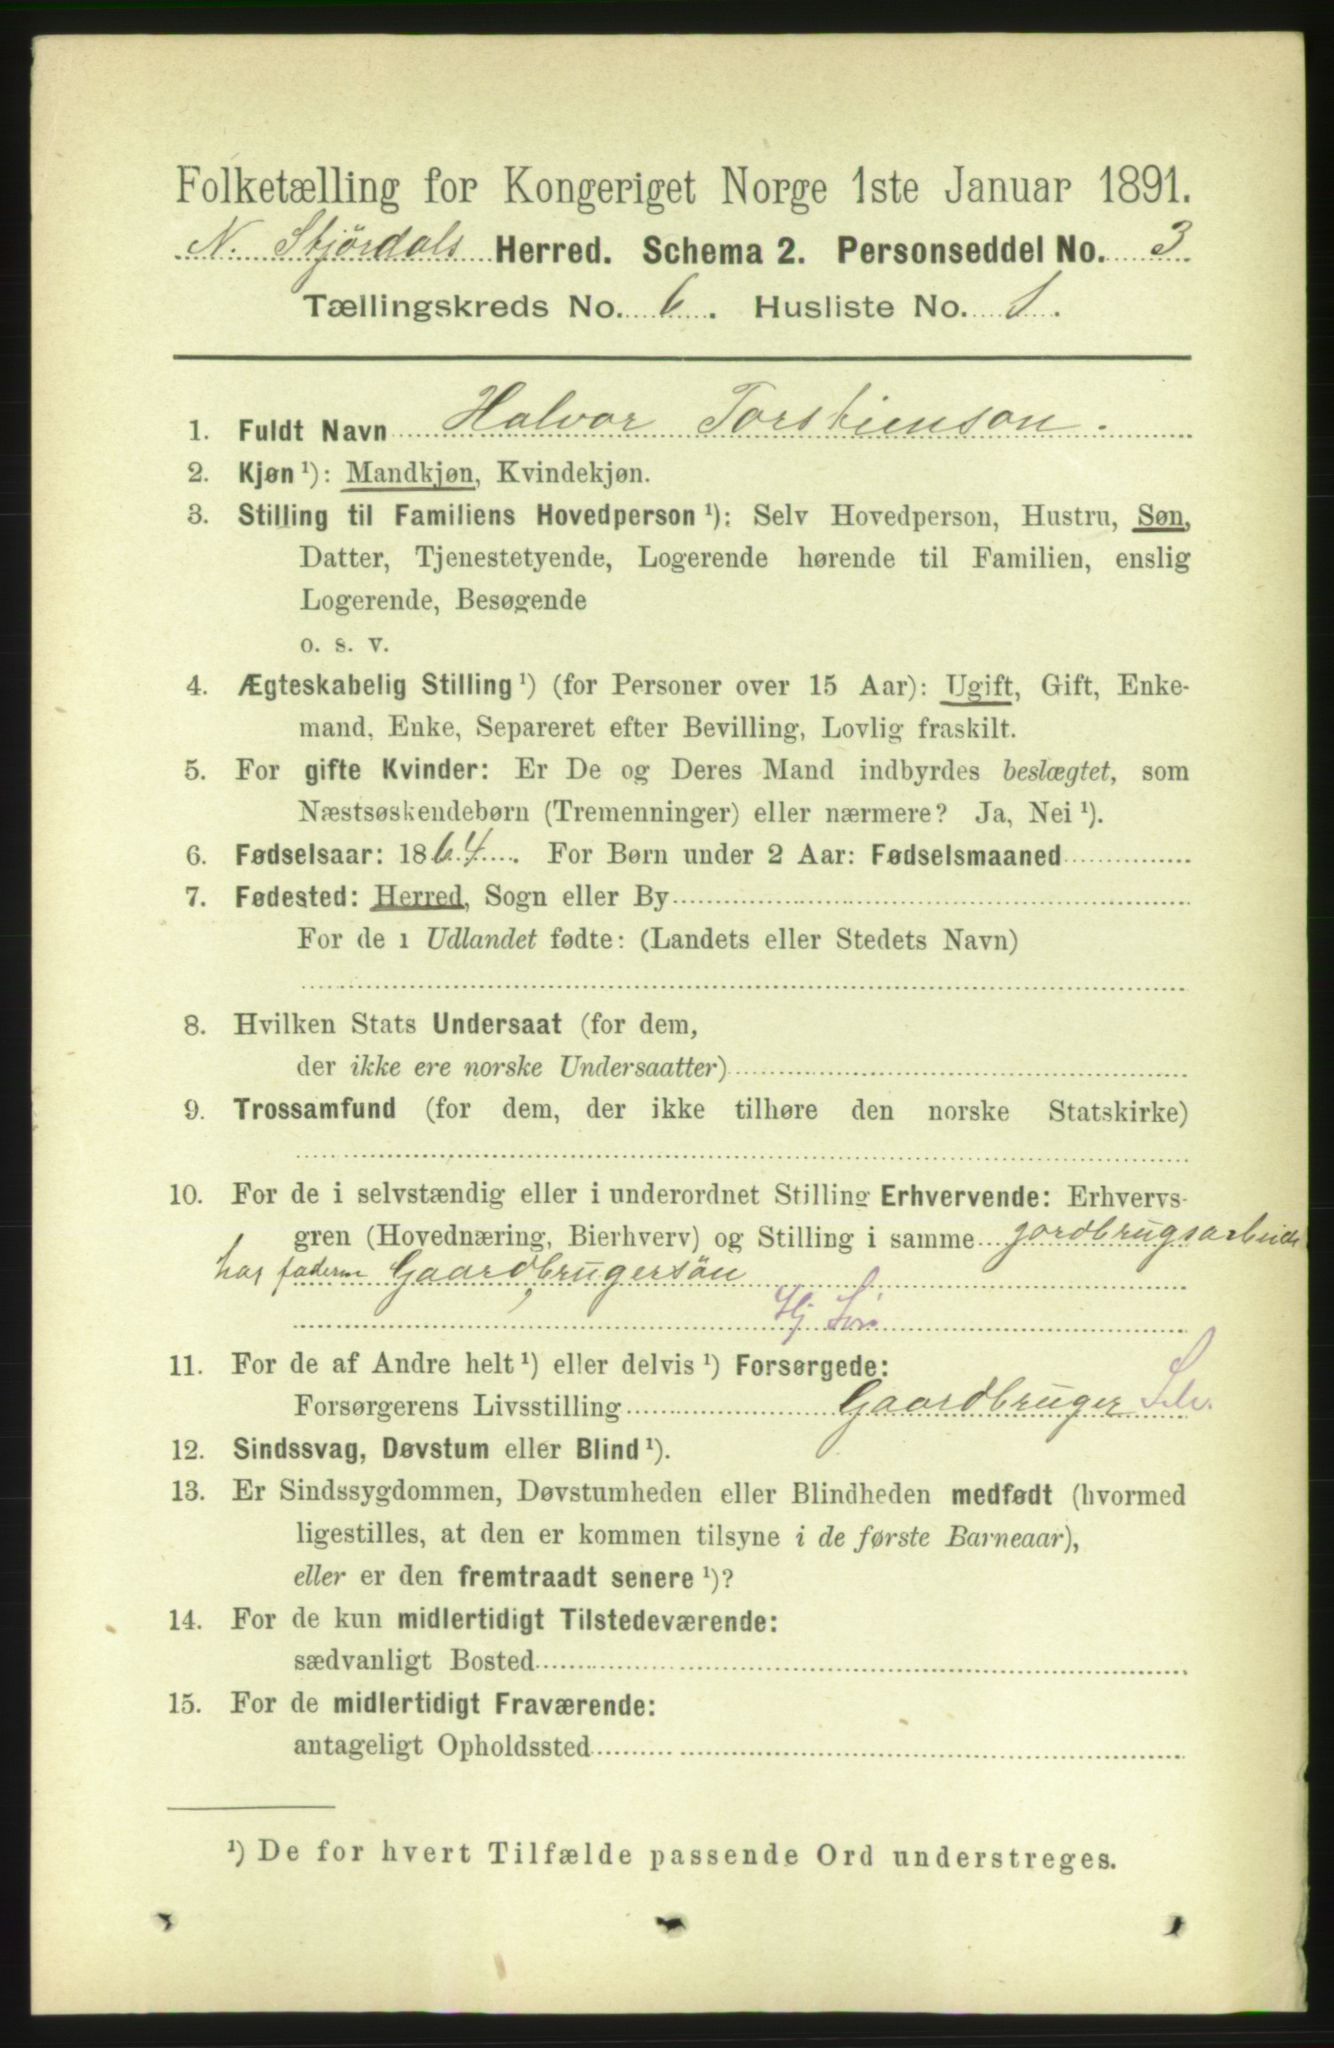 Folketælling for Kongeriget Norge 1ste Januar 1891.
N. Stjördals Herred. Schema 2. Personseddel No. 3
Tællingskreds No. 6. Husliste No. 1.
1. Fuldt Navn Halvor Torstienson.
2. Kjøn ¹): Mandkjøn, Kvindekjøn.
3. Stilling til Familiens Hovedperson ¹): Selv Hovedperson, Hustru, Søn,
Datter, Tjenestetyende, Logerende hørende til Familien, enslig
Logerende, Besøgende
o. s. v.
4. Ægteskabelig Stilling ¹) (for Personer over 15 Aar): Ugift, Gift, Enke-
mand, Enke, Separeret efter Bevilling, Lovlig fraskilt.
5. For gifte Kvinder: Er De og Deres Mand indbyrdes beslægtet, som
Næstsøskendebørn (Tremenninger) eller nærmere? Ja, Nei ¹).
6. Fødselsaar: 1864. For Børn under 2 Aar: Fødselsmaaned
7. Fødested: Herred, Sogn eller By
For de i Udlandet fødte: (Landets eller Stedets Navn)
8. Hvilken Stats Undersaat (for dem,
der ikke ere norske Undersaatter)
9. Trossamfund (for dem, der ikke tilhøre den norske Statskirke)
10. For de i selvstændig eller i underordnet Stilling Erhvervende: Erhvervs-
gren (Hovednæring, Bierhverv) og Stilling i samme jordbrugsarbeide
hos faderen Gaardbrugersön
Hj
11. For de af Andre helt ¹) eller delvis ¹) Forsørgede:
Forsørgerens Livsstilling Gaardbruger Selv.
12. Sindssvag, Døvstum eller Blind ¹).
13. Er Sindssygdommen, Døvstumheden eller Blindheden medfødt (hvormed
ligestilles, at den er kommen tilsyne i de første Barneaar),
eller er den fremtraadt senere ¹)?
14. For de kun midlertidigt Tilstedeværende:
sædvanligt Bosted
15. For de midlertidigt Fraværende:
antageligt Opholdssted
¹) De for hvert Tilfælde passende Ord understreges.